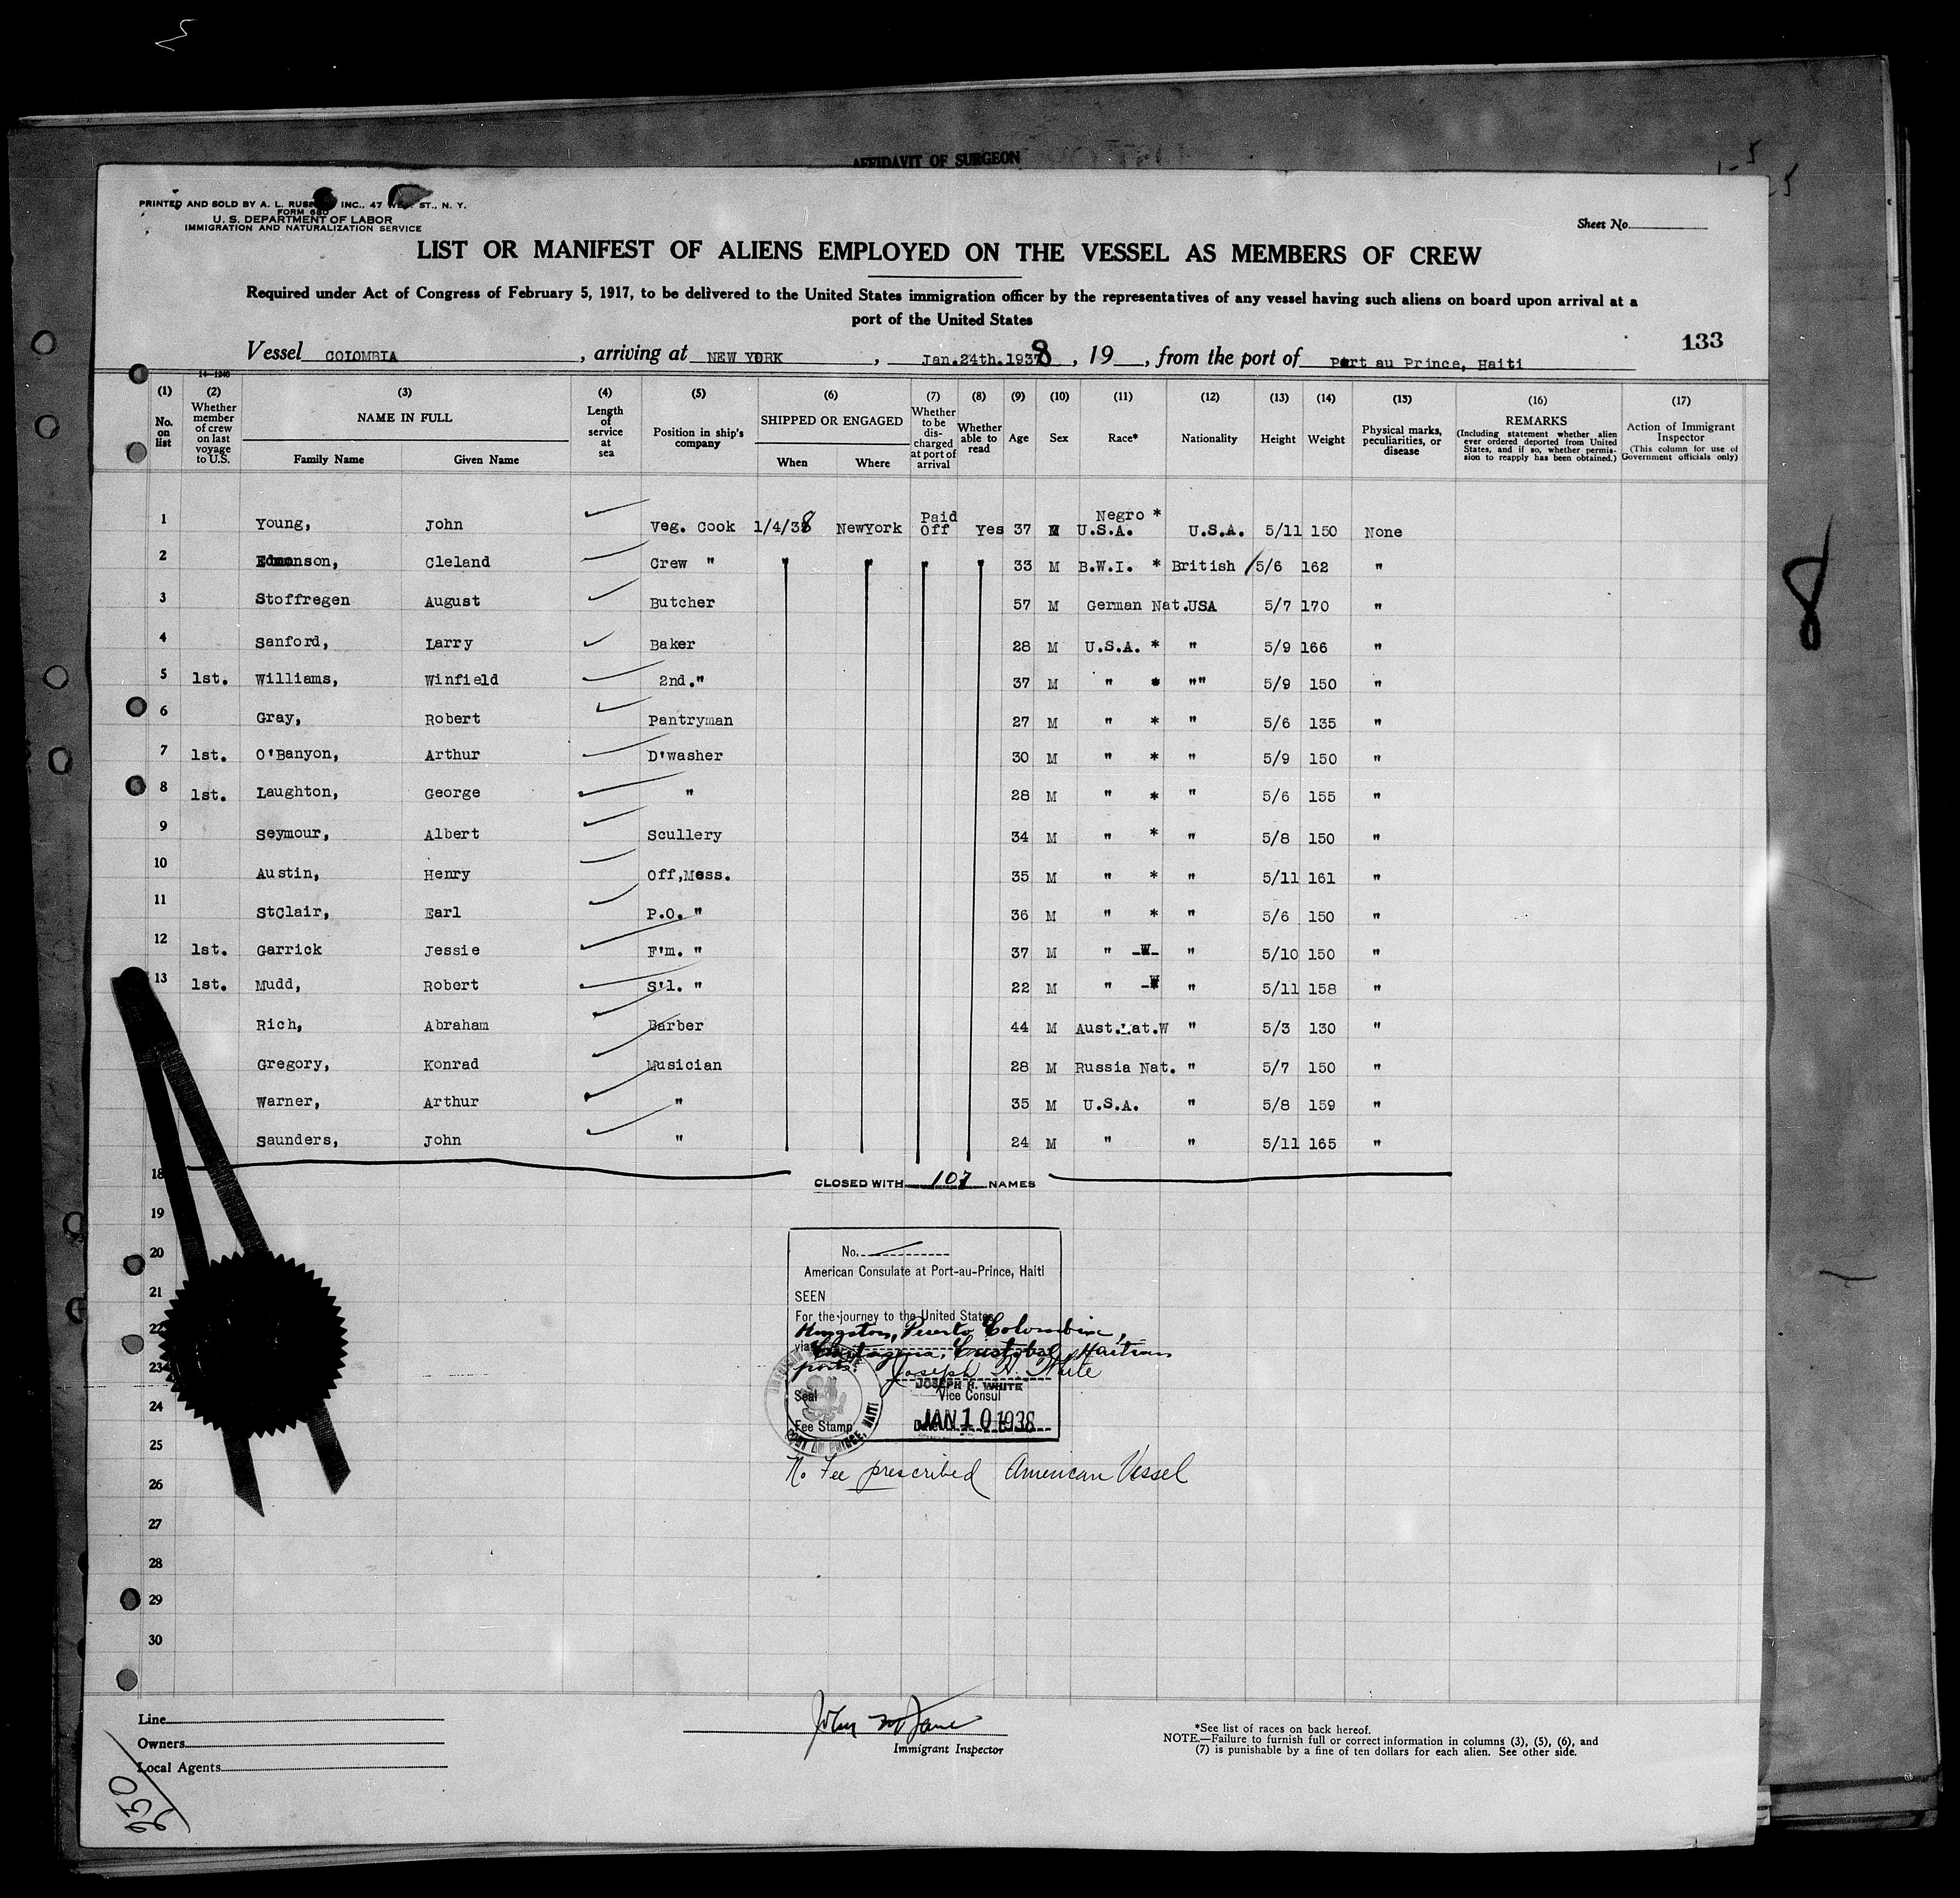 AFFIDAVIT OF SURGEON
PRINTED AND SOLD BY A. L. INC., 47 ST., N. Y.
FORM 680
U. S. DEPARTMENT OF LABOR
IMMIGRATION AND NATURALIZATION SERVICE
Sheet No.
LIST OR MANIFEST OF ALIENS EMPLOYED ON THE VESSEL AS MEMBERS OF CREW
Required under Act of Congress of February 5, 1917, to be delivered to the United States immigration officer by the representatives of any vessel having such aliens on board upon arrival at a
port of the United States
133
Vessel COLOMBIA, arriving at NEW YORK, Jan.24th.1938, 19, from the port of Port au Prince, Haiti
(1) No. on list (2) Whether member of crew on last voyage to U.S. (3) NAME IN FULL Family Name Given Name (4) Length of service at sea (5) Position in ship's company (6) SHIPPED OR ENGAGED When Where (7) Whether to be discharged at port of arrival (8) Whether able to read (9) Age (10) Sex (11) Race* (12) Nationality (13) Height (14) Weight (15) Physical marks, peculiarities, or disease (16) REMARKS (Including statement whether alien ever ordered deported from United States, and if so, whether permission to reapply has been obtained.) (17) Action of Immigrant Inspector (This column for use of Government officials only)
1 Young, John Veg. Cook 1/4/38 NewYork Paid Off Yes 37 M Negro * U.S.A. U.S.A. 5/11 150 None
2 Edmonson, Cleland Crew " " " " " 33 M B.W.I. * British 5/6 162 "
3 Stoffregen August Butcher 57 M German Nat.USA 5/7 170 "
4 Sanford, Larry Baker 28 M U.S.A. * " 5/9 166 "
5 1st. Williams, Winfield 2nd." 37 M " * "" 5/9 150 "
6 Gray, Robert Pantryman 27 M " * " 5/6 135 "
7 1st. O'Banyon, Arthur D'washer 30 M " * " 5/9 150 "
8 1st. Laughton, George " 28 M " * " 5/6 155 "
9 Seymour, Albert Scullery 34 M " * " 5/8 150 "
10 Austin, Henry Off,Mess. 35 M " * " 5/11 161 "
11 StClair, Earl P.O. " 36 M " * " 5/6 150 "
12 1st. Garrick Jessie F'm. " 37 M " -W- " 5/10 150 "
13 1st. Mudd, Robert S'l. " 22 M " -W " 5/11 158 "
Rich, Abraham Barber 44 M Aust.Nat.W " 5/3 130 "
Gregory, Konrad Musician 28 M Russia Nat. " 5/7 150 "
Warner, Arthur " 35 M U.S.A. " 5/8 159 "
Saunders, John " 24 M " " 5/11 165 "
18
CLOSED WITH 107 NAMES
19
20
21
22
23
24
25
26
27
28
29
30
No.
American Consulate at Port-au-Prince, Haiti
SEEN
For the journey to the United States
Kingston, Puerto Colombia,
via Cartagena, Cristobal, Haitian
ports.
Joseph H. White
JOSEPH H. WHITE
Seal Vice Consul
Fee Stamp Date JAN 10 1938
PORT AU PRINCE, HAITI
No Fee prescribed American Vessel
Line
Owners
Local Agents
230
Immigrant Inspector
*See list of races on back hereof.
NOTE.—Failure to furnish full or correct information in columns (3), (5), (6), and
(7) is punishable by a fine of ten dollars for each alien. See other side.
8